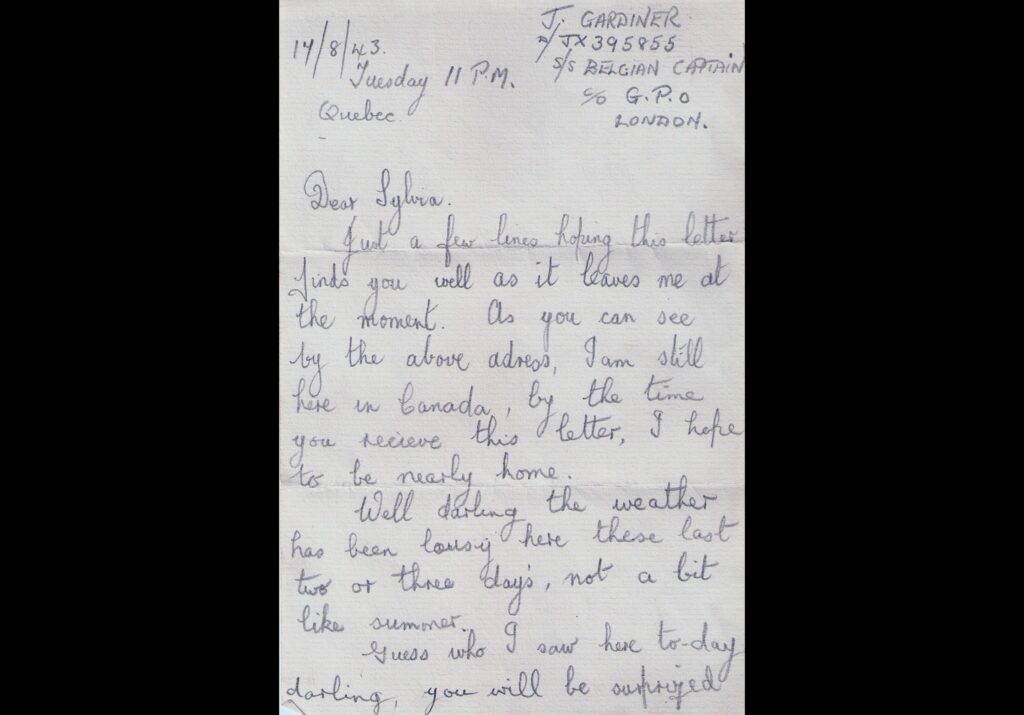 17/8/43.
Tuesday 11 P.M.
Quebec.
J. GARDINER
P/JX395855
S/S BELGIAN CAPTAIN
c/o G.P.O
LONDON.
Dear Sylvia.
Just a few lines hoping this letter
finds you well as it leaves me at
the moment. As you can see
by the above adress, I am still
here in Canada, by the time
you recieve this letter, I hope
to be nearly home.
Well darling the weather
has been lousy here these last
two or three day's, not a bit
like summer.
Guess who I saw here to-day
darling, you will be surprized